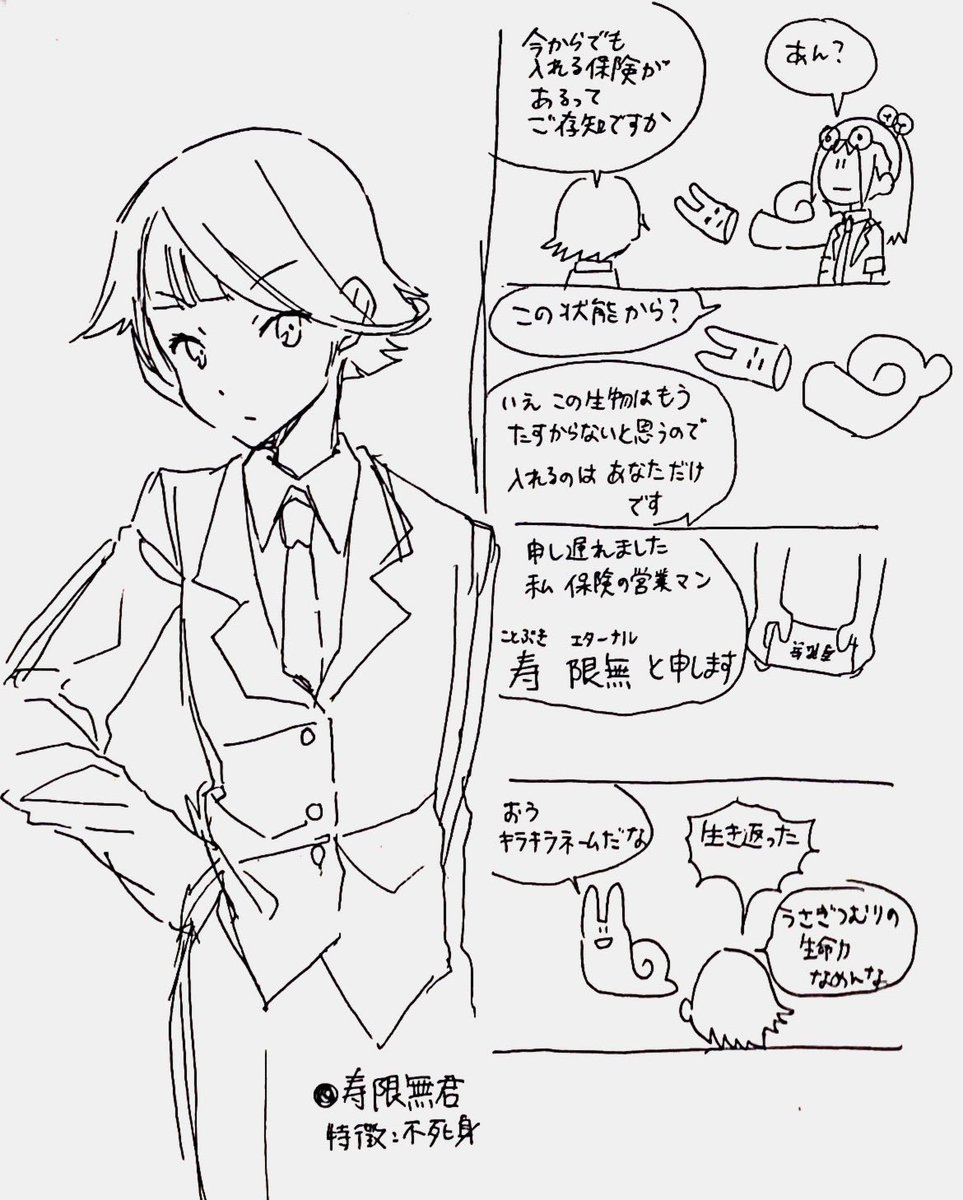 今からでも
入れる保険が
あるって
ご存知ですか
あん?
この状態から?
いえ この生物はもう
たすからないと思うので
入れるのは あなただけ
です
申し遅れました
私 保険の営業マン
ことぶき エターナル
寿 限無 と申します
おう
キラキラネームだな
生き返った
うさぎつむりの
生命力
なめんな
寿限無君
特徴:不死身